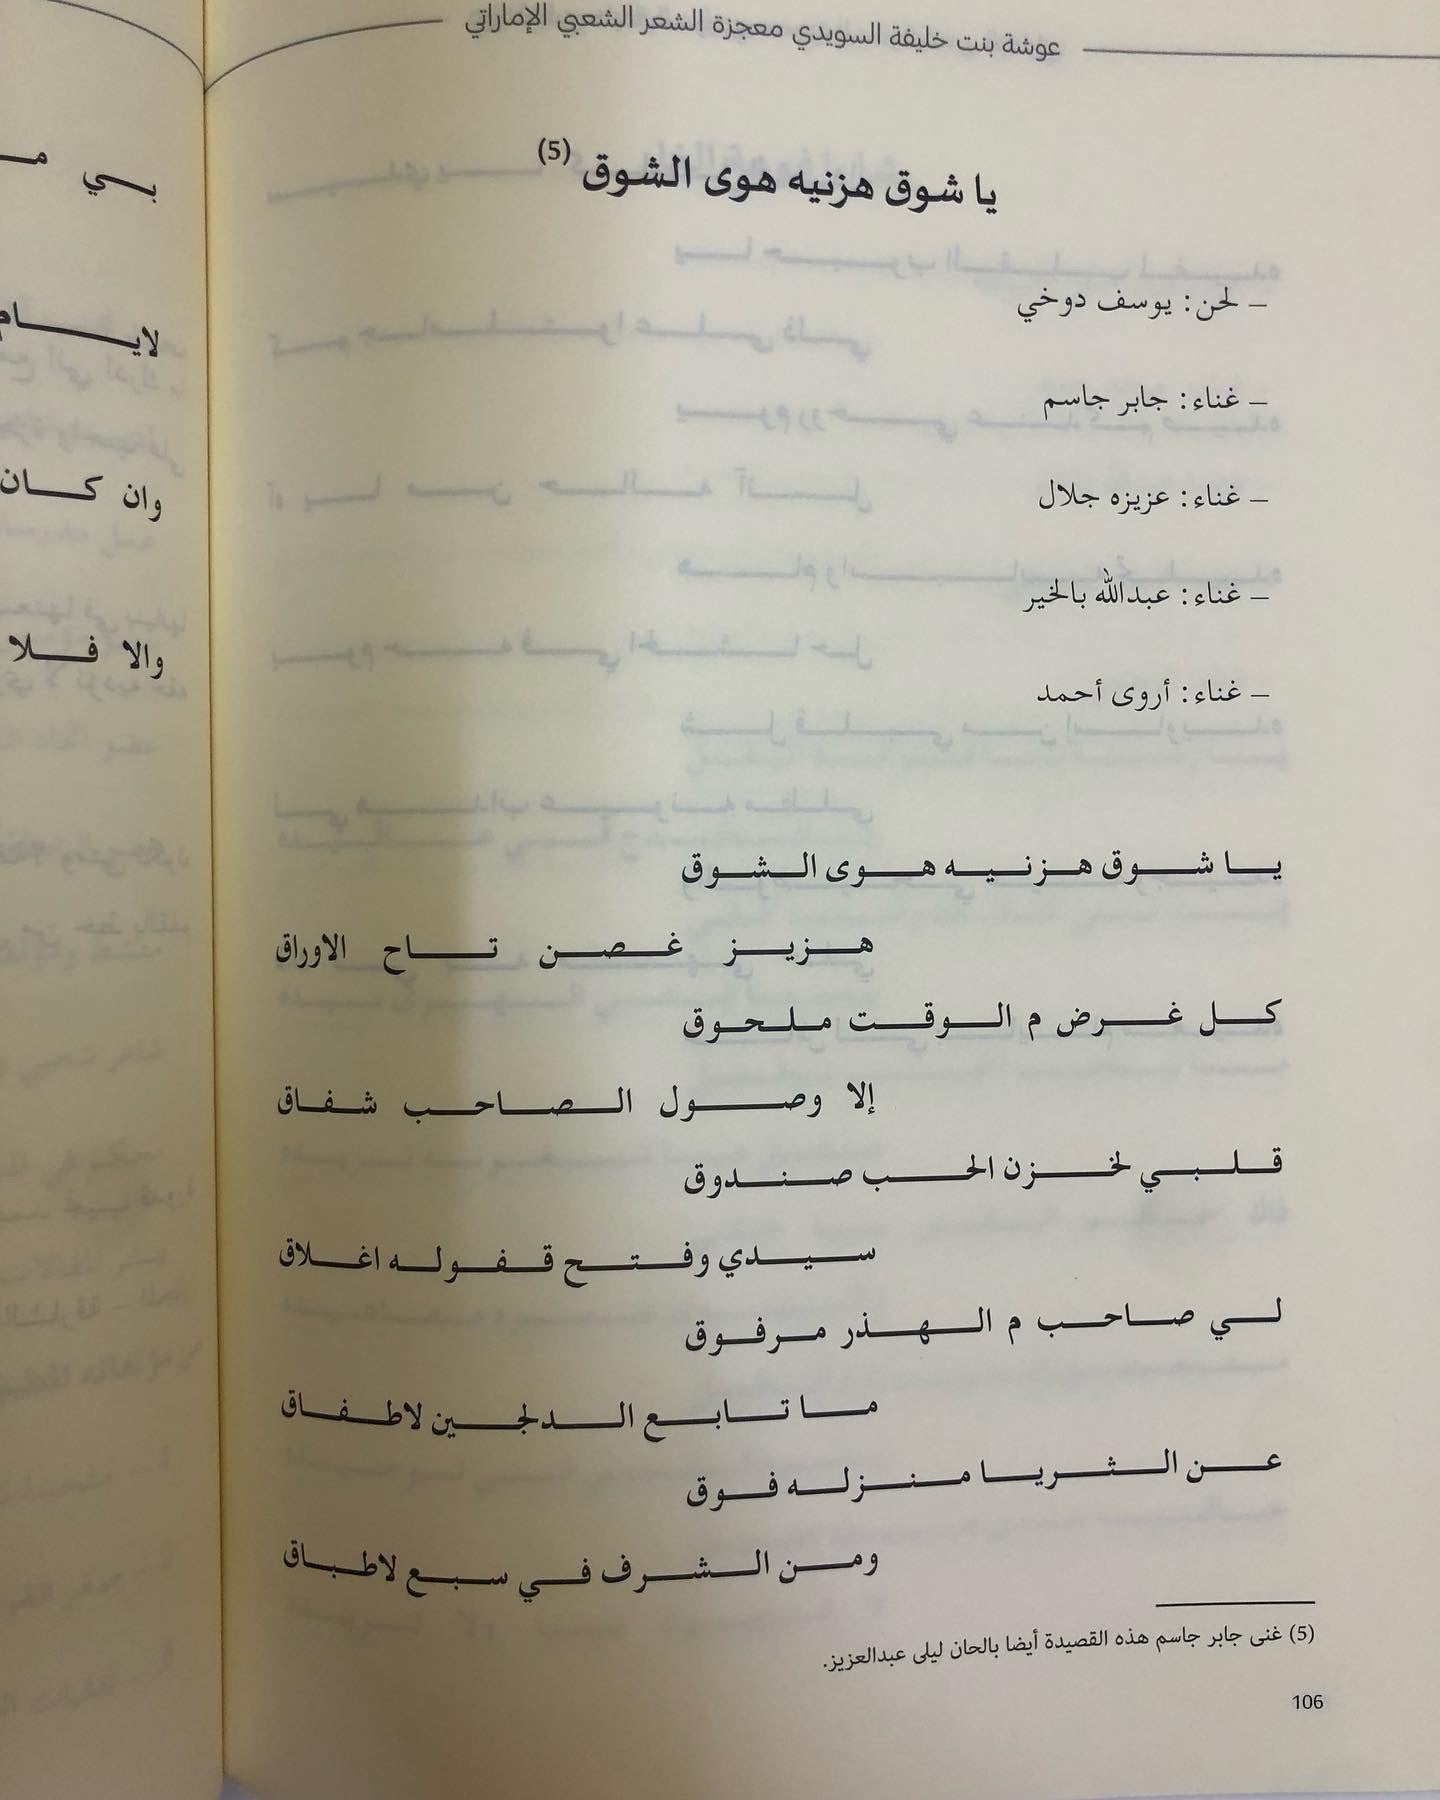 عوشة بنت خليفة السويدي معجزة الشعر الشعبي الإماراتي
يا شوق هزنيه هوى الشوق (5)
– لحن: يوسف دوخي
– غناء: جابر جاسم
– غناء: عزيزه جلال
– غناء: عبدالله بالخير
– غناء: أروى أحمد
يا شوق هزنيه هوى الشوق
هزيز غصن تاح الاوراق
كل غرض م الوقت ملحوق
إلا وصول الصاحب شفاق
قلبي لخزن الحب صندوق
سيدي وفتح قفوله اغلاق
لي صاحب م الهذر مرفوق
ما تابع الدلجين لاطفاق
عن الثريا منزله فوق
ومن الشرف في سبع لاطباق
(5) غنى جابر جاسم هذه القصيدة أيضا بالحان ليلى عبدالعزيز.
106
بي
لايام
وان كان
والا فلا